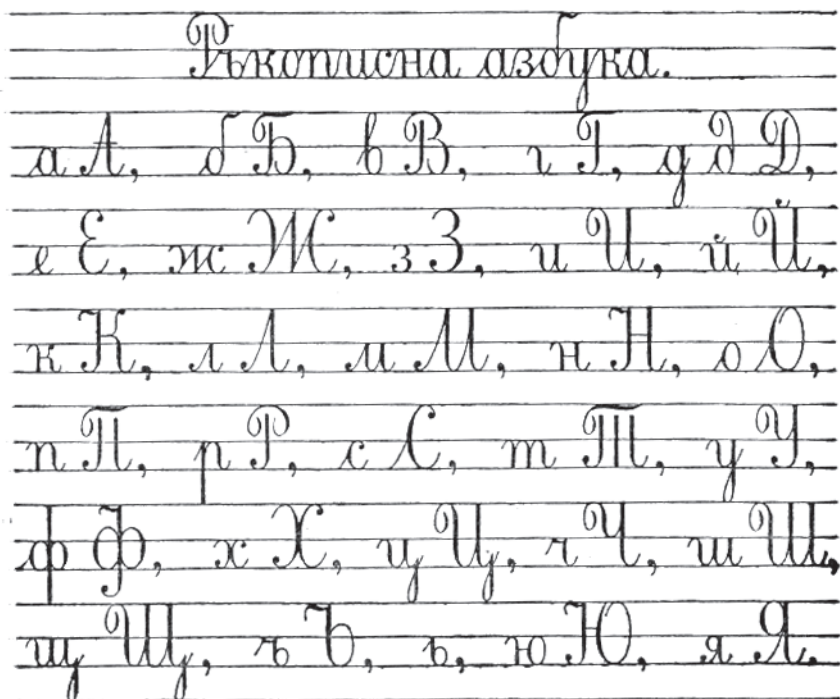 Ръкописна азбука.
а А, б Б, в В, г Г, д д Д,
е Е, ж Ж, з З, и И, й Й,
к К, л Л, м М, н Н, о О,
п П, р Р, с С, т Т, у У,
ф Ф, х Х, ц Ц, ч Ч, ш Ш,
щ Щ, ъ Ъ, ь, ю Ю, я Я.